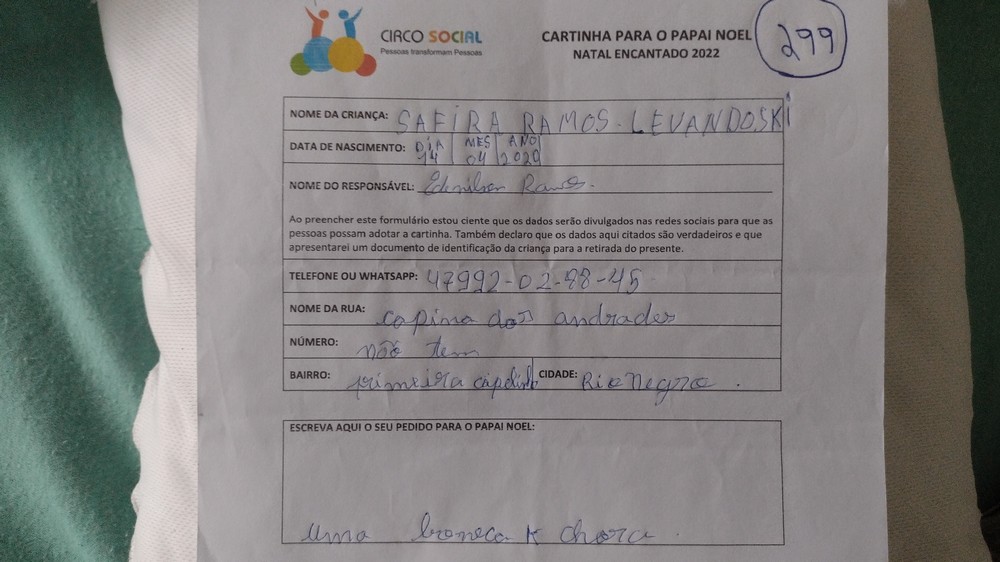 CIRCO SOCIAL
Pessoas transformam Pessoas
CARTINHA PARA O PAPAI NOEL
NATAL ENCANTADO 2022
299
NOME DA CRIANÇA: SAFIRA RAMOS. LEVANDOSKI
DATA DE NASCIMENTO: DIA 14 MES 04 ANO 2020
NOME DO RESPONSÁVEL: Edenilson Ramos.
Ao preencher este formulário estou ciente que os dados serão divulgados nas redes sociais para que as
pessoas possam adotar a cartinha. Também declaro que os dados aqui citados são verdadeiros e que
apresentarei um documento de identificação da criança para a retirada do presente.
TELEFONE OU WHATSAPP: 47992-02-88-45
NOME DA RUA: capina dos andrades
NÚMERO: não tem
BAIRRO: primeira CIDADE: Rio Negro.
ESCREVA AQUI O SEU PEDIDO PARA O PAPAI NOEL:
uma boneca k chora.